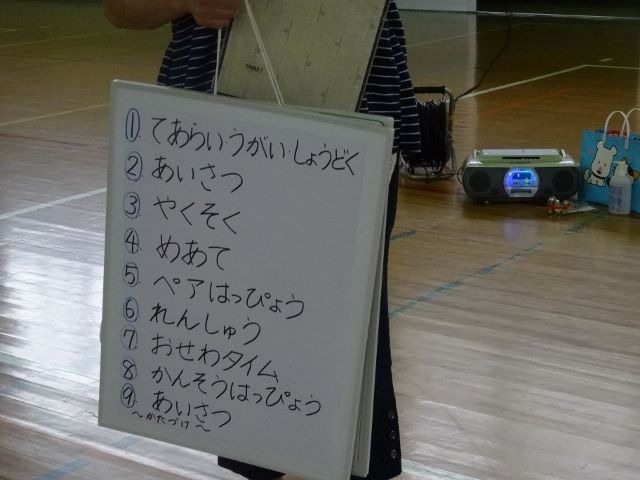 ① てあらい・うがい・しょうどく
② あいさつ
③ やくそく
④ めあて
⑤ ペアはっぴょう
⑥ れんしゅう
⑦ おせわタイム
⑧ かんそうはっぴょう
⑨ あいさつ
～かたづけ～